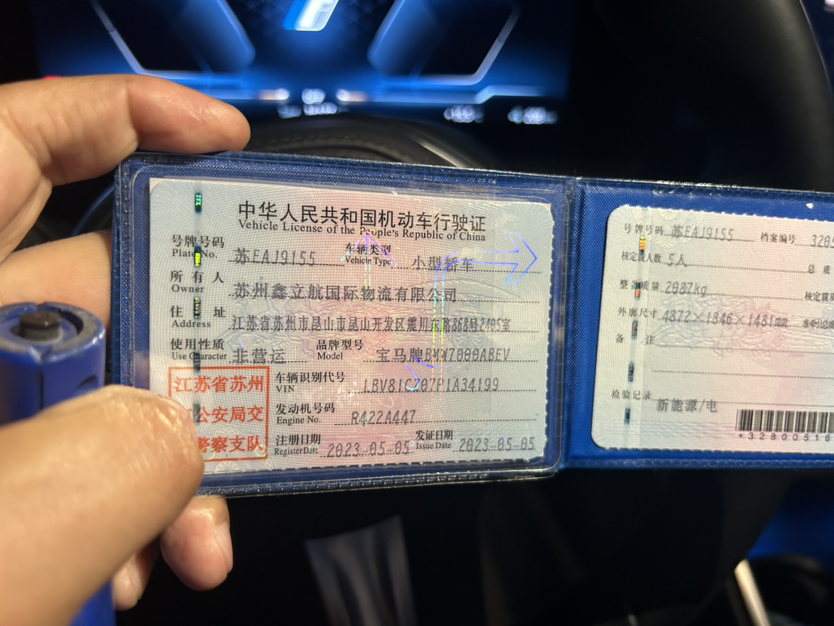 中华人民共和国机动车行驶证
Vehicle License of the People's Republic of China
号牌号码 苏EAJ9155 车辆类型 小型轿车
Plate No. Vehicle Type
所有人 苏州鑫立航国际物流有限公司
Owner
住址 江苏省苏州市昆山市昆山开发区震川东路868号2405室
Address
使用性质 非营运 品牌型号 宝马牌BMW7000ABEV
Use Character Model
江苏省苏州
公安局交
警察支队
车辆识别代号 LBV81CZ07P1A34199
VIN
发动机号码 R422A447
Engine No.
注册日期 2023-05-05 发证日期 2023-05-05
Register Date Issue Date
号牌号码 苏EAJ9155 档案编号
核定载人数 5人 总质
整备质量 2087kg 核定载
外廓尺寸 4872×1846×1481mm
备注
检验记录
新能源/电